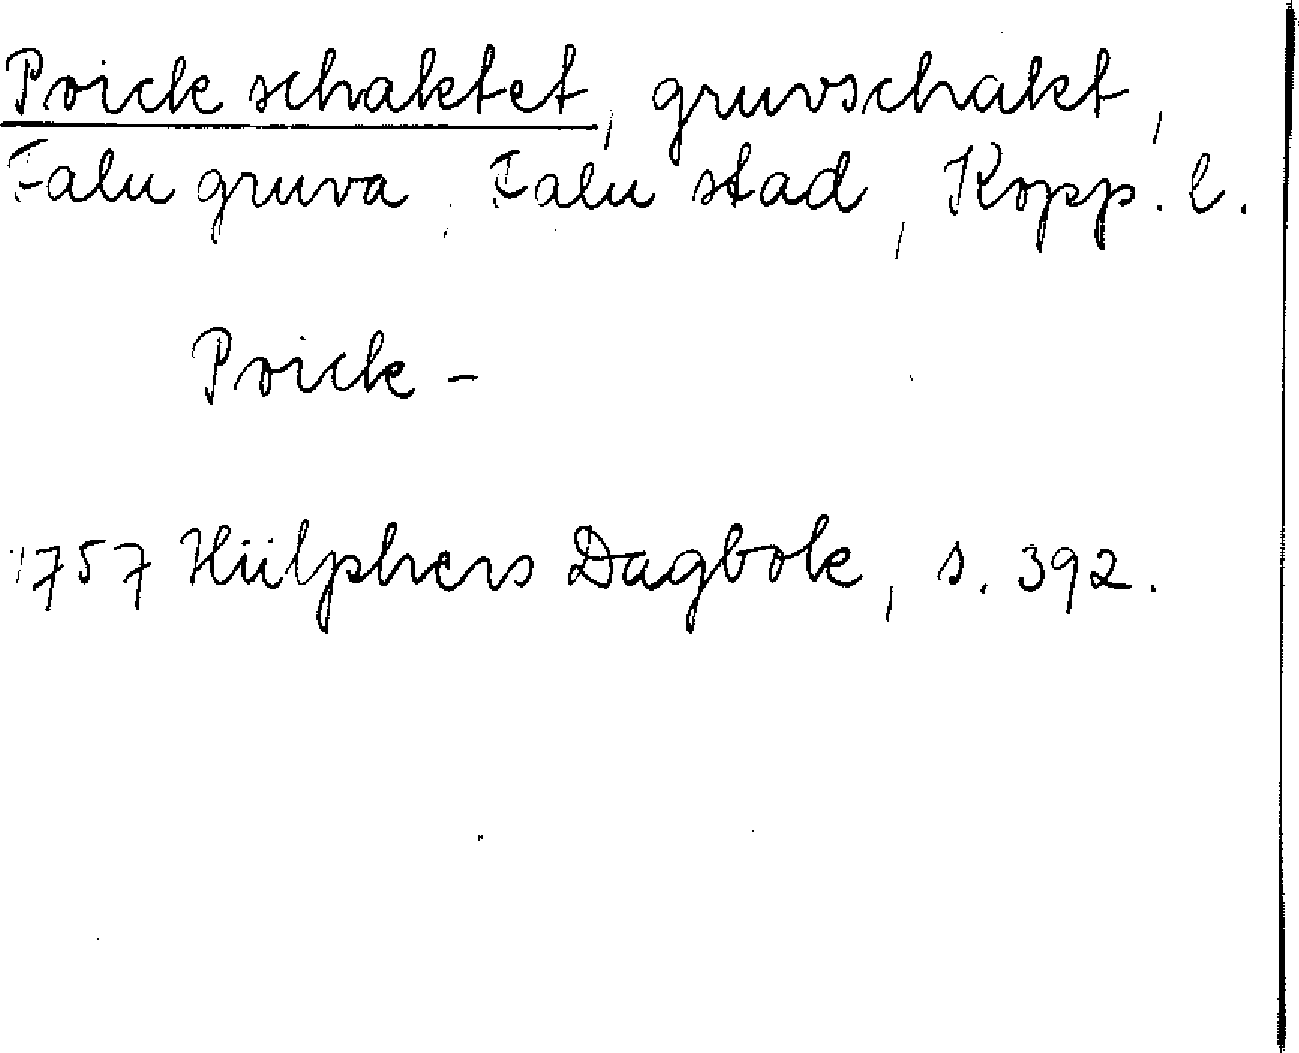 Prick schaktet, gruvschakt,
Falu gruva, Falu stad, Kopp. l.
Prick -
1757 Hülphers Dagbok, s. 392.